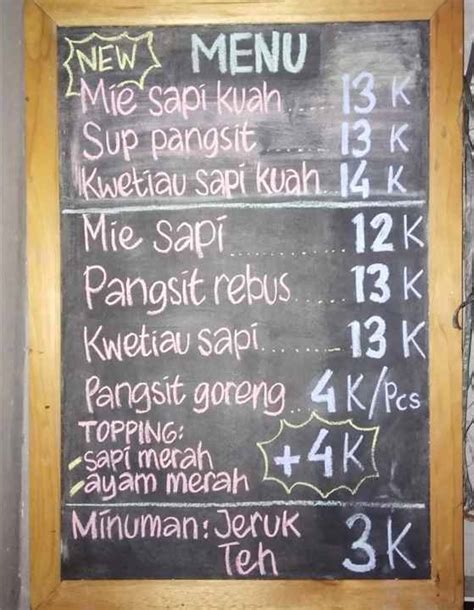 NEW MENU
Mie sapi kuah .... 13 K
Sup pangsit ....... 13 K
Kwetiau sapi kuah.. 14 K
Mie sapi ............ 12 K
Pangsit rebus ...... 13 K
Kwetiau sapi........ 13 K
Pangsit goreng .. 4 K/Pcs
TOPPING:
- sapi merah
- ayam merah
+ 4 K
Minuman : Jeruk
Teh
3 K